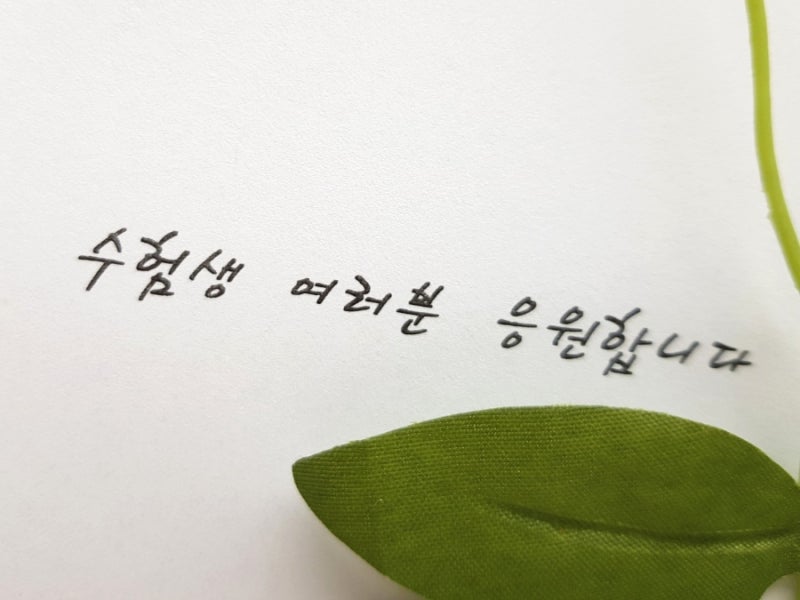 수험생 여러분 응원합니다